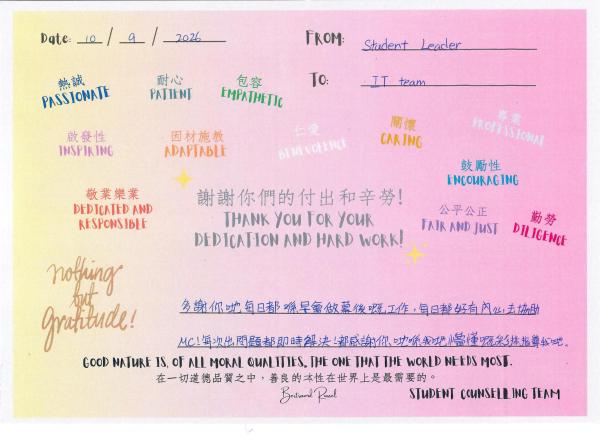 Date: 10 / 9 / 2026
FROM: Student Leader
TO: IT team
熱誠
PASSIONATE
耐心
PATIENT
包容
EMPATHETIC
啟發性
INSPIRING
因材施教
ADAPTABLE
仁愛
BENEVOLENCE
關懷
CARING
專業
PROFESSIONAL
鼓勵性
ENCOURAGING
敬業樂業
DEDICATED AND
RESPONSIBLE
謝謝你們的付出和辛勞!
THANK YOU FOR YOUR
DEDICATION AND HARD WORK!
公平公正
FAIR AND JUST
勤勞
DILIGENCE
nothing
but
gratitude!
多謝你哋每日都喺早會做幕後嘅工作,每日都好有內心去協助
MC!每次出問題都即時解決!都感謝你哋喺我哋懵懂嘅彩排指導我哋。
GOOD NATURE IS, OF ALL MORAL QUALITIES, THE ONE THAT THE WORLD NEEDS MOST.
在一切道德品質之中,善良的本性在世界上是最需要的。
Bertrand Russel
STUDENT COUNSELLING TEAM